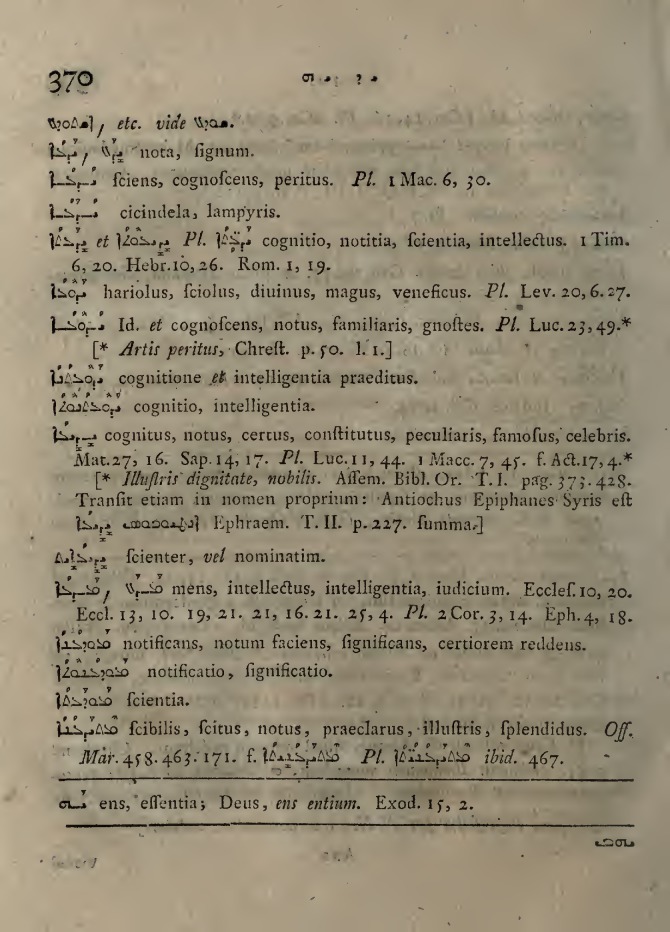 370 ܝ ܕ ܝ ܗ
etc. vide
ܝܕܥܐ, ܝܕܥ nota, ſignum.
ܝܕܥܐ ſciens, cognoſcens, peritus. Pl. 1 Mac. 6, 30.
ܝܕܥܐ cicindela, lampyris.
ܝܕܥܬܐ et ܝܕܥܘܬܐ Pl. ܝܕܥܬܐ cognitio, notitia, ſcientia, intellectus. 1 Tim.
6, 20. Hebr. 10, 26. Rom. 1, 19.
ܝܕܘܥܐ hariolus, ſciolus, diuinus, magus, veneficus. Pl. Lev. 20, 6. 27.
ܝܕܘܥܐ Id. et cognoſcens, notus, familiaris, gnoſtes. Pl. Luc. 23, 49.*
[* Artis peritus, Chreſt. p. 50. l. 1.]
ܝܕܘܥܬܢܐ cognitione et intelligentia praeditus.
ܝܕܘܥܬܢܘܬܐ cognitio, intelligentia.
ܝܕܝܥܐ cognitus, notus, certus, conſtitutus, peculiaris, famoſus, celebris.
Mat. 27, 16. Sap. 14, 17. Pl. Luc. 11, 44. 1 Macc. 7, 45. f. Act. 17, 4.*
[* Illuſtris dignitate, nobilis. Aſſem. Bibl. Or. T. I. pag. 373. 428.
Tranſit etiam in nomen proprium: Antiochus Epiphanes Syris eſt
ܐܢܛܝܘܟܘܣ ܝܕܝܥܐ Ephraem. T. II. p. 227. ſumma.]
ܝܕܝܥܐܝܬ ſcienter, vel nominatim.
ܡܕܥܐ, ܡܕܥ mens, intellectus, intelligentia, iudicium. Eccleſ. 10, 20.
Eccl. 13, 10. 19, 21. 21, 16. 21. 25, 4. Pl. 2 Cor. 3, 14. Eph. 4, 18.
ܡܘܕܥܢܐ notificans, notum faciens, ſignificans, certiorem reddens.
ܡܘܕܥܢܘܬܐ notificatio, ſignificatio.
ܡܘܕܥܬܐ ſcientia.
ܡܬܝܕܥܢܐ ſcibilis, ſcitus, notus, praeclarus, illuſtris, ſplendidus. Off.
Mar. 458. 463. 171. f. ܡܬܝܕܥܢܝܬܐ Pl. ܡܬܝܕܥܢܝܬܐ ibid. 467.
ܝܗ ens, eſſentia; Deus, ens entium. Exod. 15, 2.
ܝܗܒ